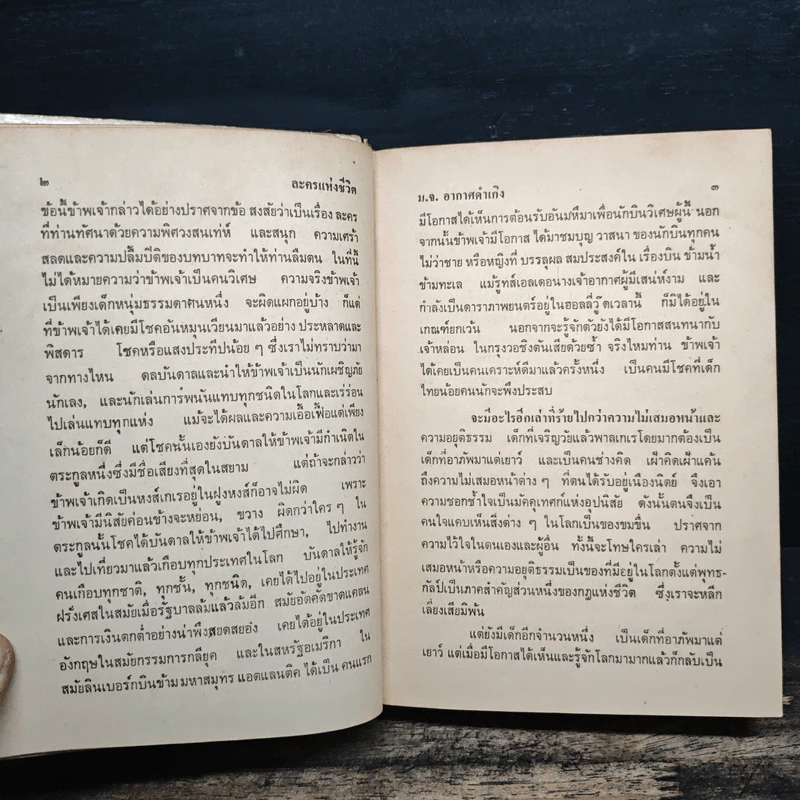 ๒ ละครแห่งชีวิต
ข้อนี้ข้าพเจ้ากล่าวได้อย่างปราศจากข้อ สงสัยว่าเป็นเรื่อง ละคร
ที่ท่านทัศนาด้วยความพิศวงสนเท่ห์ และสนุก ความเศร้า
สลดและความปลื้มปีติของบทบาทจะทำให้ท่านลืมตน ในที่นี้
ไม่ได้หมายความว่าข้าพเจ้าเป็นคนวิเศษ ความจริงข้าพเจ้า
เป็นเพียงเด็กหนุ่มธรรมดาคนหนึ่ง จะผิดแผกอยู่บ้าง ก็แต่
ที่ข้าพเจ้าได้เคยมีโชคอันหมุนเวียนมาแล้วอย่าง ประหลาดและ
พิสดาร โชคหรือแสงประทีปน้อย ๆ ซึ่งเราไม่ทราบว่ามา
จากทางไหน ดลบันดาลและนำให้ข้าพเจ้าเป็นนักเผชิญภัย
นักเลง, และนักเล่นการพนันแทบทุกชนิดในโลกและเร่ร่อน
ไปเล่นแทบทุกแห่ง แม้จะได้ผลและความเอื้อเฟื้อแต่เพียง
เล็กน้อยก็ดี แต่โชคนั้นเองยังบันดาลให้ข้าพเจ้ามีกำเนิดใน
ตระกูลหนึ่งซึ่งมีชื่อเสียงที่สุดในสยาม แต่ถ้าจะกล่าวว่า
ข้าพเจ้าเกิดเป็นหงส์เกเรอยู่ในฝูงหงส์ก็อาจไม่ผิด เพราะ
ข้าพเจ้ามีนิสัยค่อนข้างจะหย่อน, ขวาง ผิดกว่าใครๆ ใน
ตระกูลนั้นโชคได้บันดาลให้ข้าพเจ้าได้ไปศึกษา, ไปทำงาน
และไปเที่ยวมาแล้วเกือบทุกประเทศในโลก บันดาลให้รู้จัก
คนเกือบทุกชาติ, ทุกชั้น, ทุกชนิด, เคยได้ไปอยู่ในประเทศ
ฝรั่งเศสในสมัยเมื่อรัฐบาลล้มแล้วล้มอีก สมัยอัตคัดขาดแคลน
และการเงินตกต่ำอย่างน่าพึงสยดสยอง เคยได้อยู่ในประเทศ
อังกฤษในสมัยกรรมการกลียุค และในสหรัฐอเมริกา ใน
สมัยลินเบอร์กบินข้าม มหาสมุทร แอตแลนติค ได้เป็น คนแรก
ม.จ. อากาศดำเกิง ๓
มีโอกาสได้เห็นการต้อนรับอันมหึมาเพื่อนักบินวิเศษผู้นี้ นอก
จากนั้นข้าพเจ้ามีโอกาส ได้มาชมบุญ วาสนา ของนักบินทุกคน
ไม่ว่าชาย หรือหญิงที่ บรรลุผล สมประสงค์ใน เรื่องบิน ข้ามน้ำ
ข้ามทะเล แม้รูทส์เอลเดอนางเจ้าอากาศผู้มีเสน่ห์งาม และ
กำลังเป็นดาราภาพยนตร์อยู่ในฮอลลี่วู๊ดเวลานี้ ก็มิได้อยู่ใน
เกณฑ์ยกเว้น นอกจากจะรู้จักตัวยังได้มีโอกาสสนทนากับ
เจ้าหล่อน ในกรุงวอชิงตันเสียด้วยซ้ำ จริงไหมท่าน ข้าพเจ้า
ได้เคยเป็นคนเคราะห์ดีมาแล้วครั้งหนึ่ง เป็นคนมีโชคที่เด็ก
ไทยน้อยคนนักจะพึงประสบ
จะมีอะไรอีกเล่าที่ร้ายไปกว่าความไม่เสมอหน้าและ
ความอยุติธรรม เด็กที่เจริญวัยแล้วพาลเกเรโดยมากต้องเป็น
เด็กที่อาภัพมาแต่เยาว์ และเป็นคนช่างคิด เฝ้าคิดเฝ้าแค้น
ถึงความไม่เสมอหน้าต่าง ๆ ที่ตนได้รับอยู่เนืองนิตย์ จึงเอา
ความชอกช้ำใจเป็นมัคคุเทศก์แห่งอุปนิสัย ดังนั้นตนจึงเป็น
คนใจแคบเห็นสิ่งต่าง ๆ ในโลกเป็นของขมขื่น ปราศจาก
ความไว้ใจในตนเองและผู้อื่น ทั้งนี้จะโทษใครเล่า ความไม่
เสมอหน้าหรือความอยุติธรรมเป็นของที่มีอยู่ในโลกตั้งแต่พุทธ-
กัลป์เป็นภาคสำคัญส่วนหนึ่งของกฎแห่งชีวิต ซึ่งเราจะหลีก
เลี่ยงเสียมิพ้น
แต่ยังมีเด็กอีกจำนวนหนึ่ง เป็นเด็กที่อาภัพมาแต่
เยาว์ แต่เมื่อมีโอกาสได้เห็นและรู้จักโลกมามากแล้วก็กลับเป็น